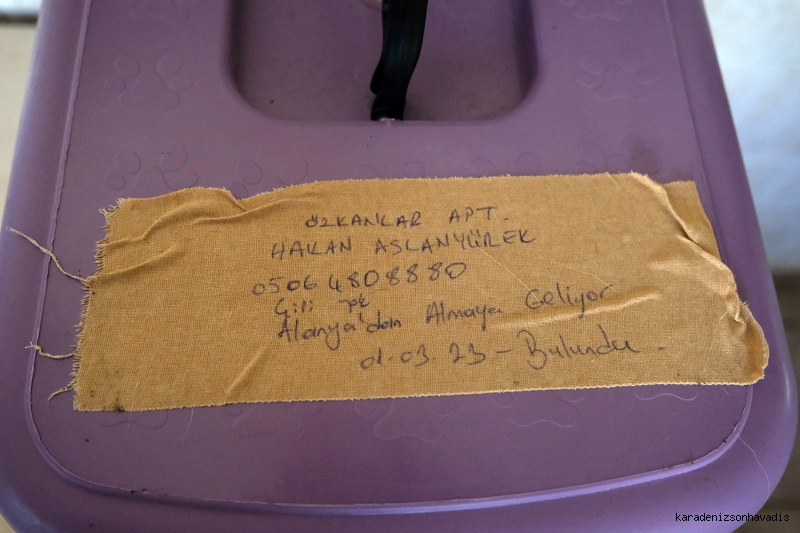 ÖZKANLAR APT.
HAKAN ASLANYÜREK
0506 480 8880
Alanya'dan Almaya Geliyor
01.03.23 - Bulundu.
karadenizsonhavadis